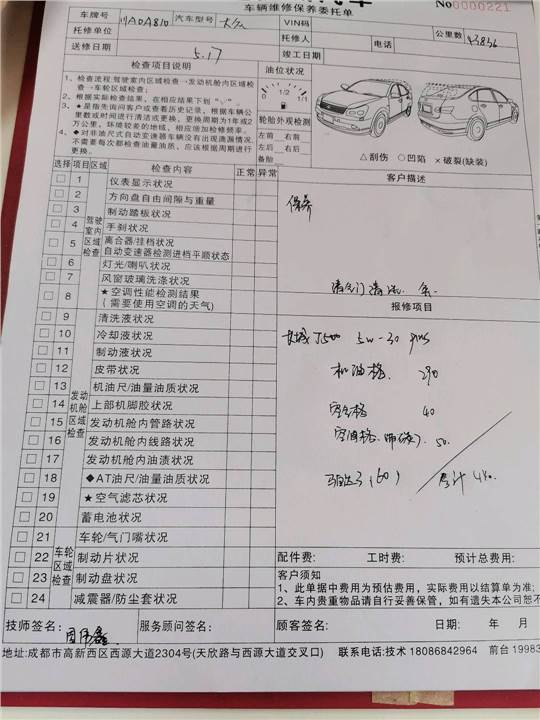 车辆维修保养委托单
No0000221
车牌号 川ADA810 汽车型号 大众 VIN码 公里数 43836
托修单位 托修人 电话
送修日期 5.17 竣工日期
检查项目说明 油位状况
1、检查流程:驾驶室内区域检查→发动机舱内区域检
查→车轮区域检查;
2、根据实际检查结果,在相应结果下到“√”。
3、★是指先询问客户或查看历史记录,根据车辆公
里数或时间进行清洁或更换,更换周期为1年或2
万公里,环境较差的地域,相应增加检修频率。
4、◆对非油尺式自动变速器车辆没有出现泄漏情况,
不需要每次都检查油量油质、应该根据周期进行
更换。
0 1/2 1/1
轮胎外观检测
左前 右前
左后 右后
备胎
△刮伤 ○凹陷 ×破裂(缺装)
选择 项目 区域 检查内容 正常 异常
客户描述
保养
报修项目
长城 J500 5w-30
机油格 290
空气格 40
50.
(60) 合计 440.
驾驶室内区域检查
1 仪表显示状况
2 方向盘自由间隙与重量
3 制动踏板状况
4 手刹状况
5 离合器/挂档状况
自动变速器检测进档平顺状态
6 灯光/喇叭状况
7 风窗玻璃洗涤状况
8 ★空调性能检测结果
(需要使用空调的天气)
发动机舱区域检查
9 清洗液状况
10 冷却液状况
11 制动液状况
12 皮带状况
13 机油尺/油量油质状况
14 上部机脚胶状况
15 发动机舱内管路状况
16 发动机舱内线路状况
17 发动机舱内油渍状况
18 ◆AT油尺/油量油质状况
19 ★空气滤芯状况
20 蓄电池状况
车轮区域检查
21 车轮/气门嘴状况
22 制动片状况
23 制动盘状况
24 减震器/防尘套状况
配件费: 工时费: 预计总费用:
客户须知
1、此单据中费用为预估费用,实际费用以结算单为准;
2、车内贵重物品请自行妥善保管,如有遗失本公司恕不
技师签名: 服务顾问签名: 顾客签名: 日期: 年 月
地址:成都市高新西区西源大道2304号(天欣路与西源大道交叉口) 联系电话:技术 18086842964 前台 19983